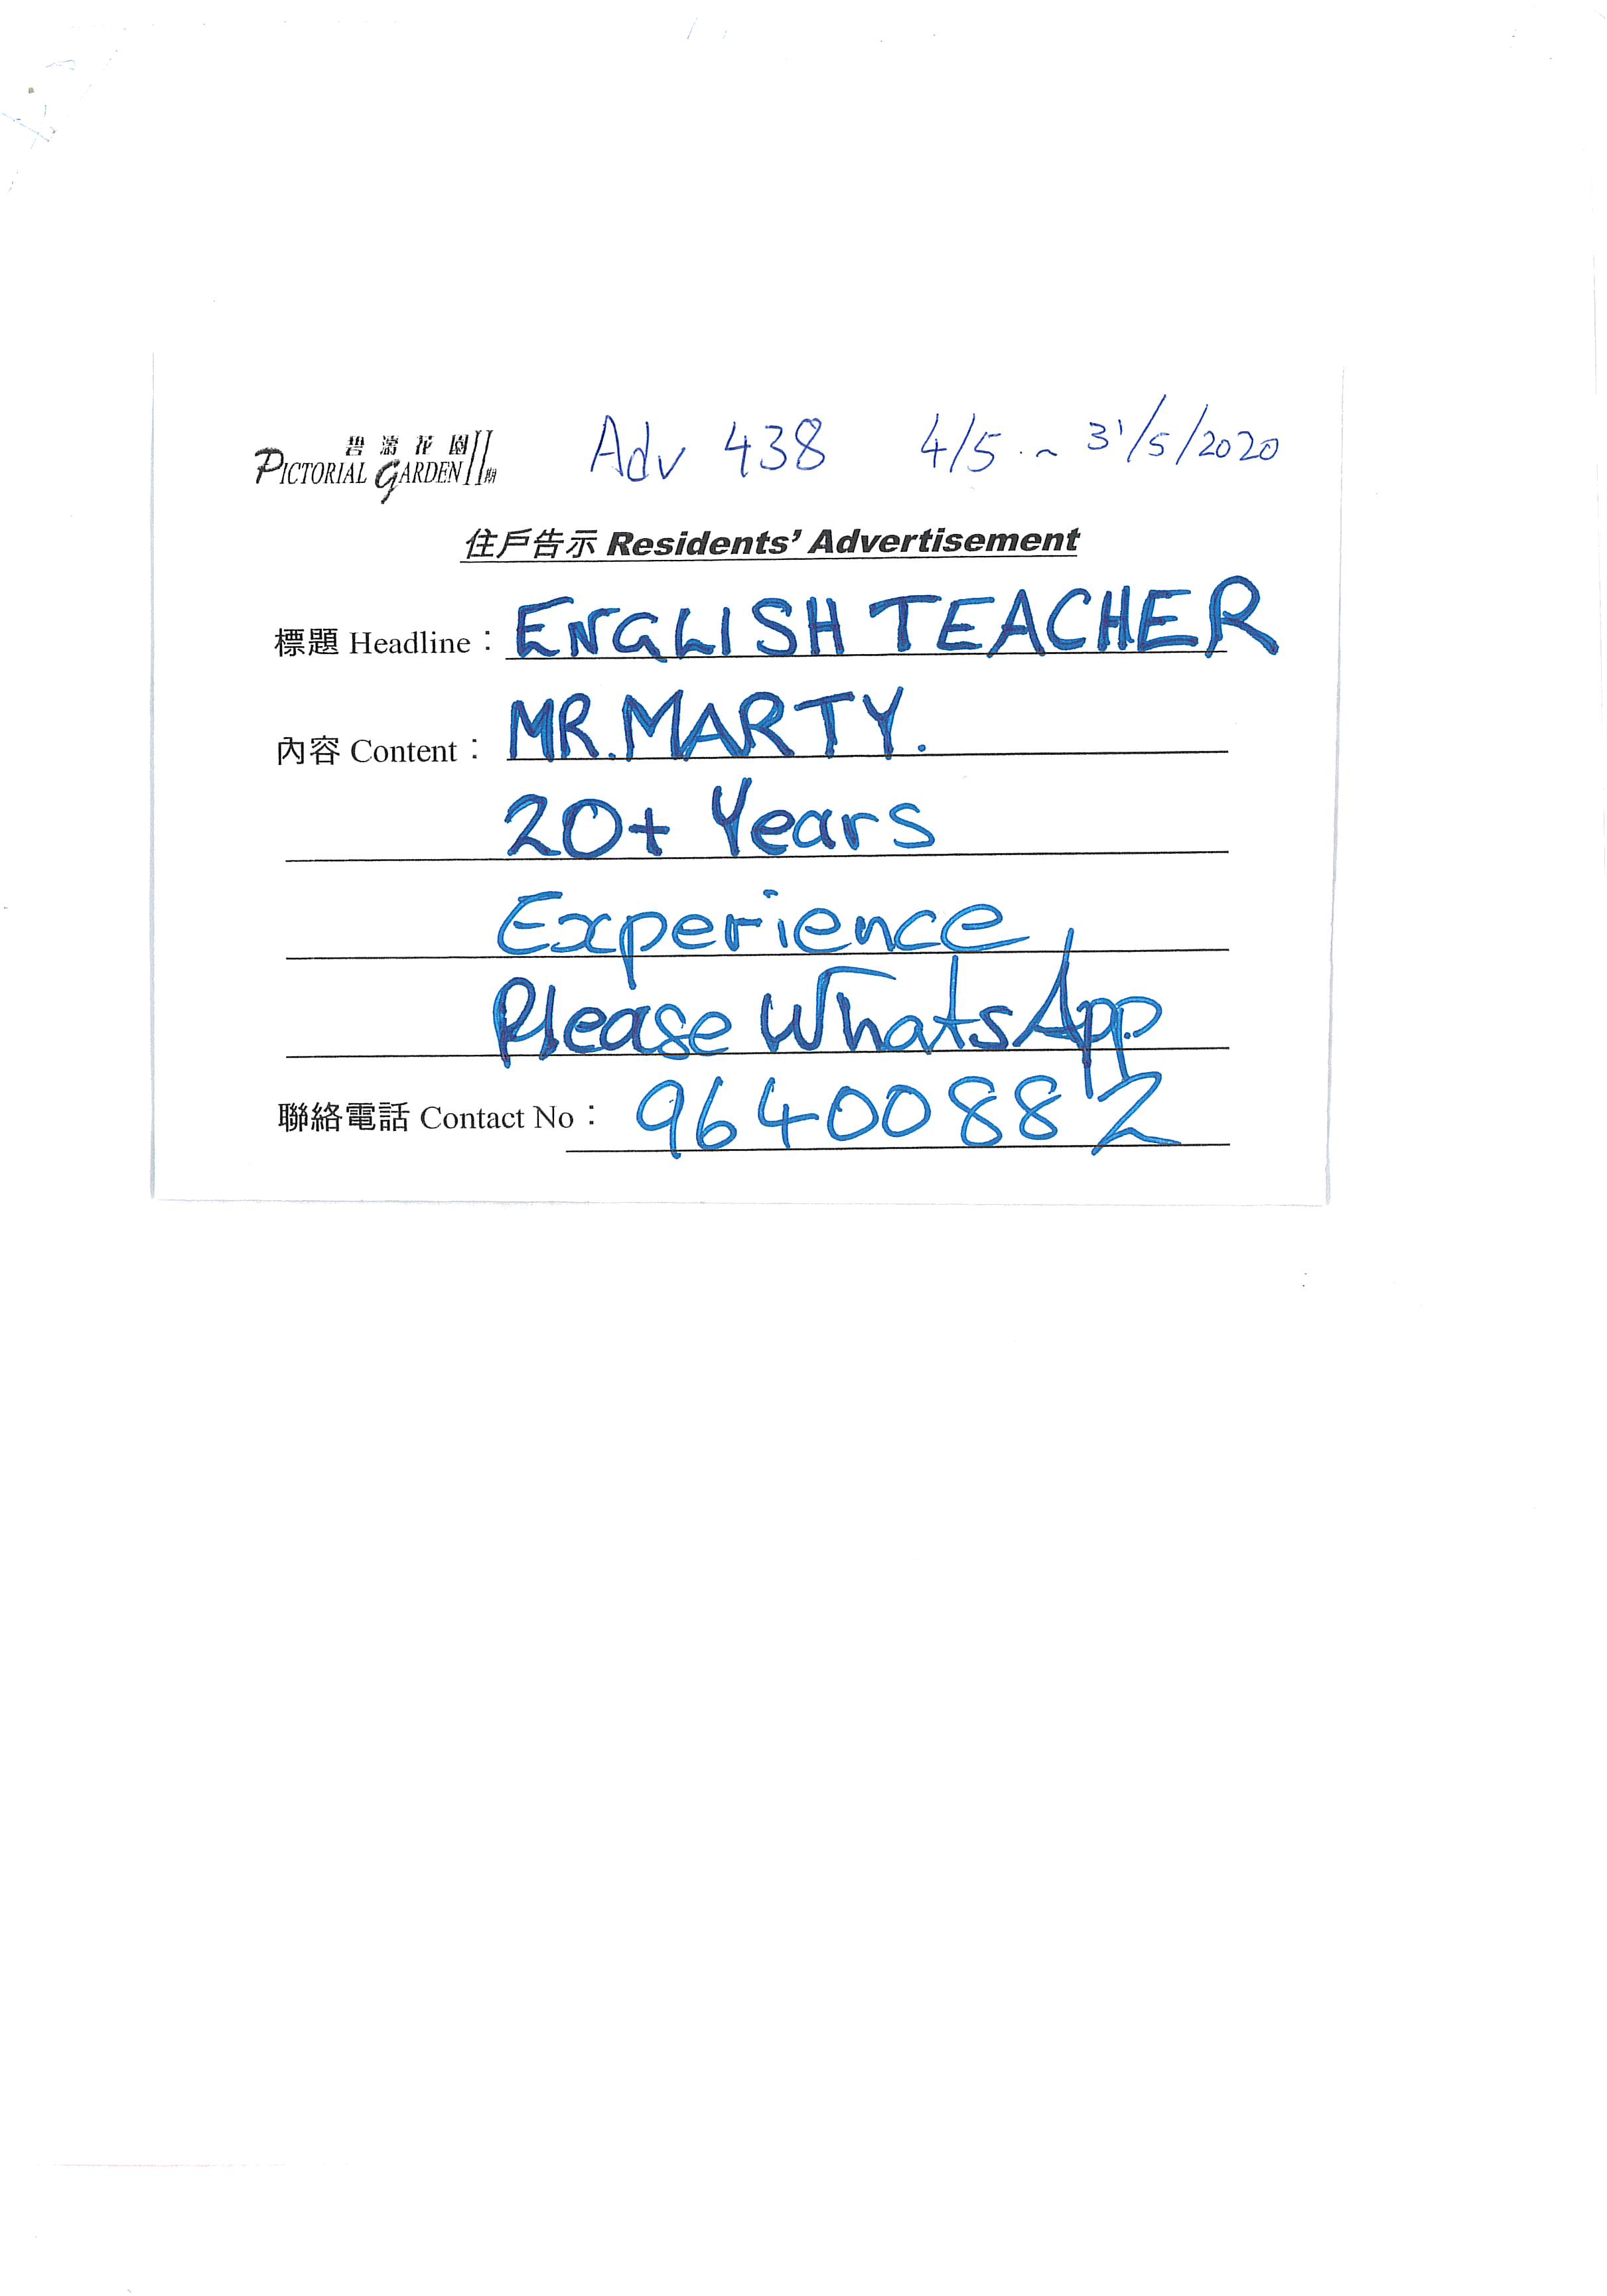 碧濤花園II期
PICTORIAL GARDEN
Adv 438 4/5 . ~ 31/5/2020
住戶告示 Residents' Advertisement
標題 Headline： ENGLISH TEACHER
內容 Content： MR. MARTY.
20+ Years
Experience
Please WhatsApp
聯絡電話 Contact No： 96400882